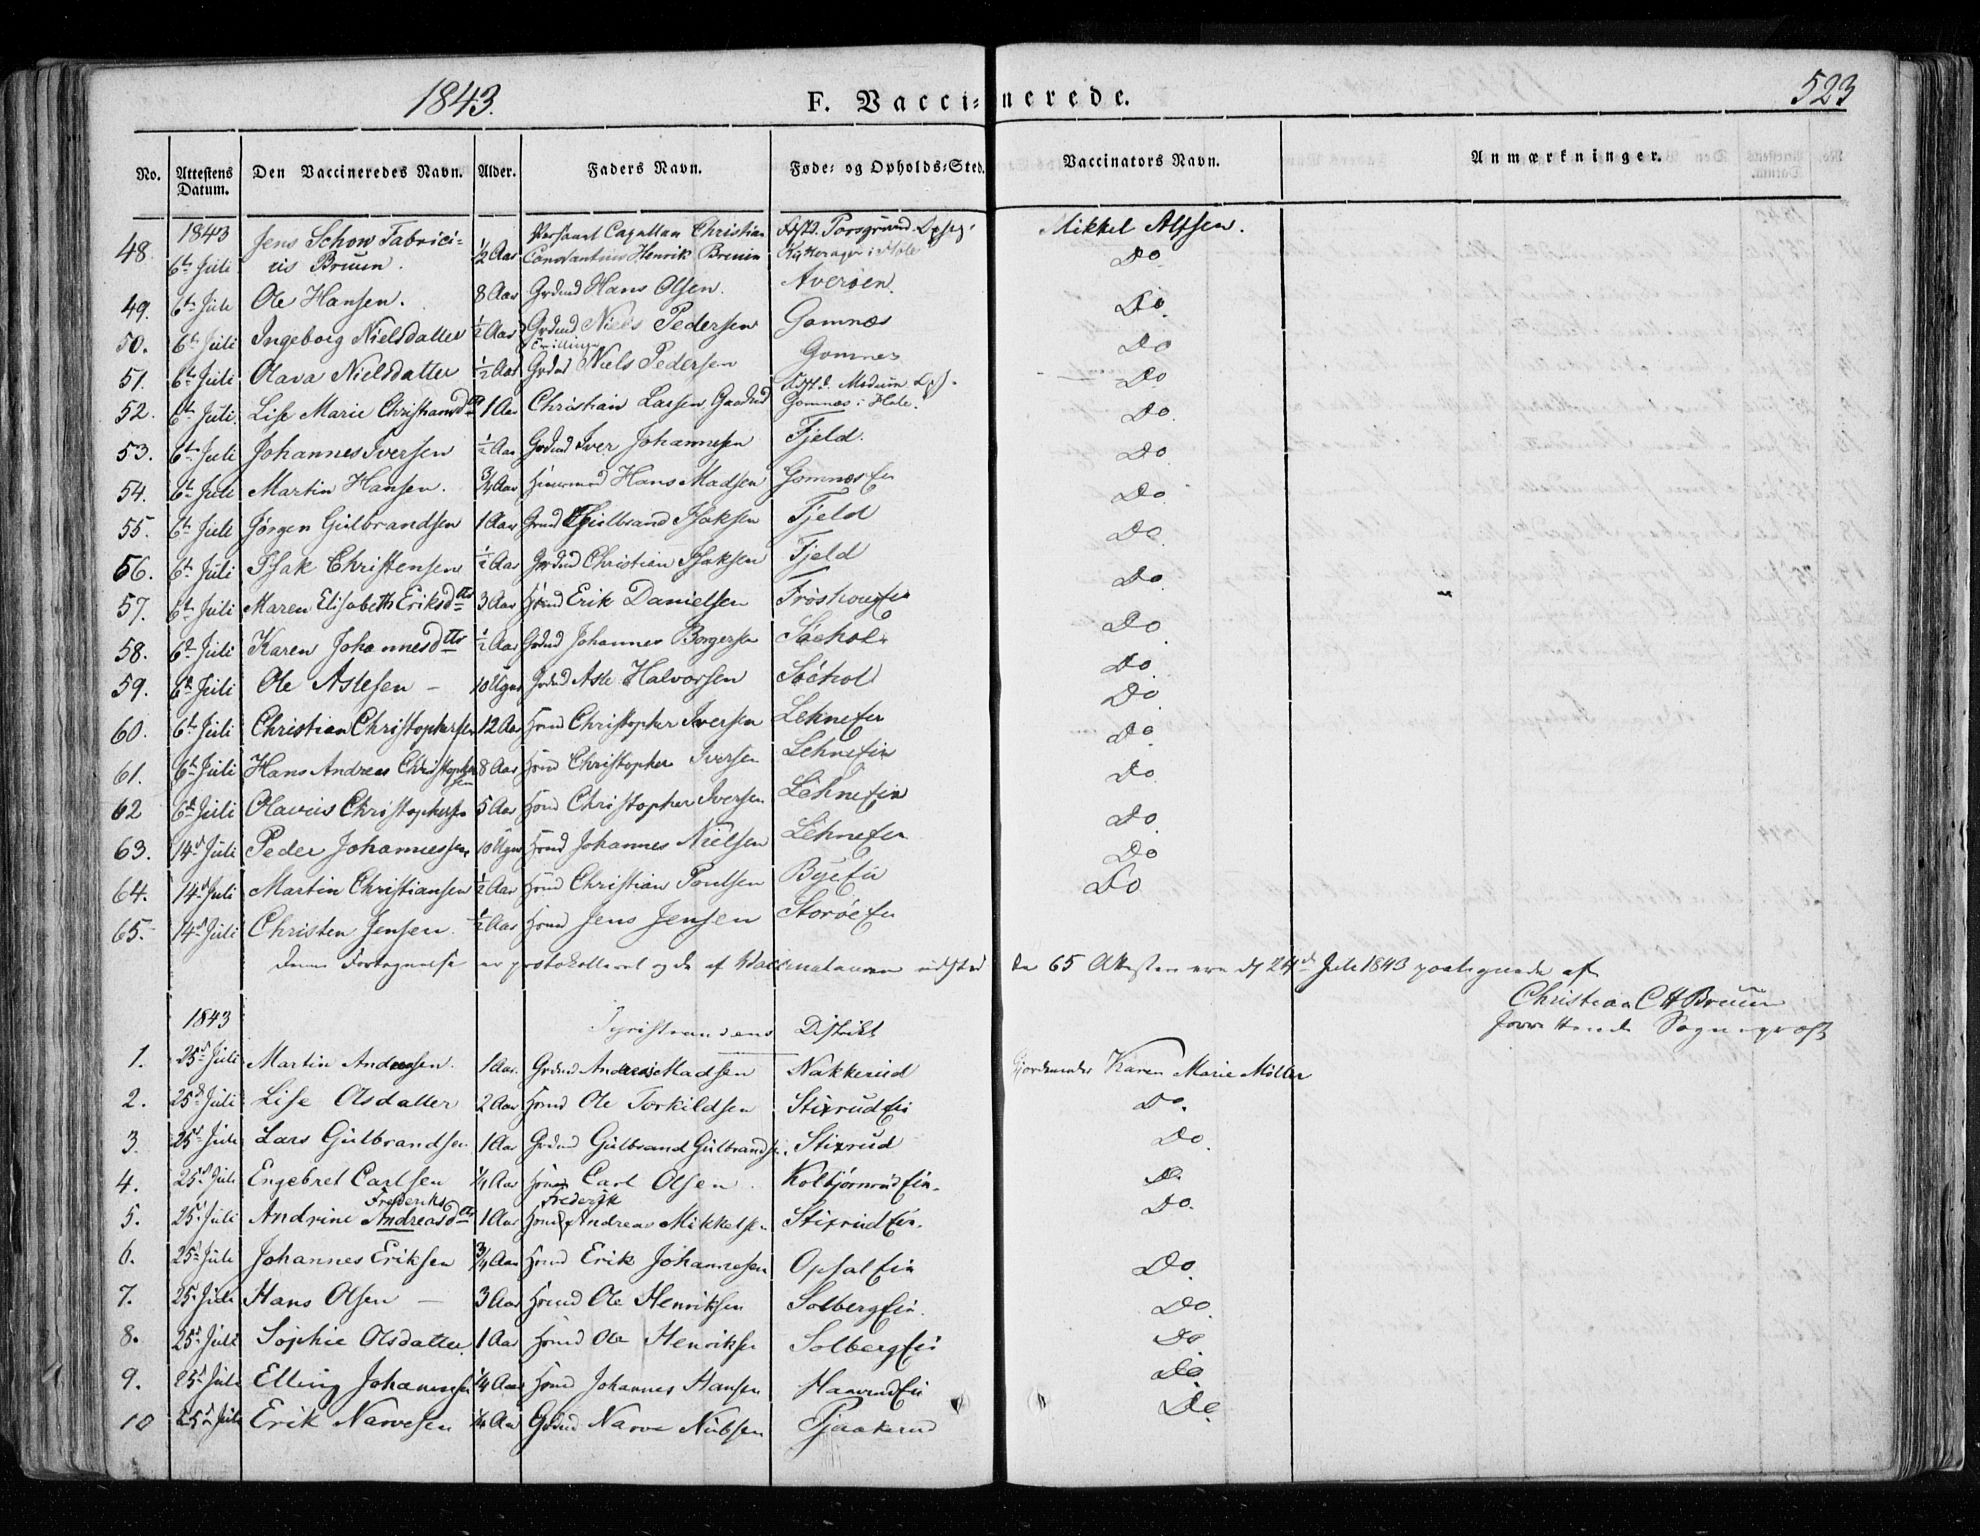 1843.
F. Vaccinerede.
523
No. Attestens Datum. Den Vaccineredes Navn. Alder. Faders Navn. Føde- og Opholds-Sted. Vaccinators Navn. Anmærkninger.
48. 1843 6te Juli Jens Schow Fabricius Bruun. ½ Aar Personel Capellan Christian Constantius Henrik Bruun Mikkel Alfsen. Do
49. 6te Juli Ole Hansen. 8 Aar Grdmd Hans Olsen. Averøen. Do
50. 6te Juli Ingeborg Nielsdatter ½ Aar Grdmd Niels Pedersen Gomnæs Do
Tvillinge
51. 6te Juli Olava Nielsdatter ½ Aar Grdmd Niels Pedersen Gomnes Do
52. 6te Juli. Lise Marie Christiansdtr 1 Aar Christian Larsen Gaardmd Fødst. Modum Gomnæs i Hole. Do
53. 6te Juli Johannes Iversen ½ Aar Grdmd Iver Johannesen Fjeld. Do
54. 6te Juli Martin Hansen. ¾ Aar Huusmand Hans Madsen Gomnæs Eie Do
55. 6te Juli Jørgen Gulbrandsen 1 Aar Grmd Gulbrand Isaksen Fjeld Do
56. 6te Juli Isak Christensen ½ Aar Grdmd Christian Isaksen Fjeld Do
57. 6te Juli Maren Elisabeth Eriksdtr 3 Aar Hsmd Erik Danielsen Frøshougeie Do
58. 6te Juli Karen Johannesdtr ½ Aar Grdmd Johannes Borgersen Søehol Do
59. 6te Juli Ole Aslesen – 10 Uger Grdmd Asle Halvorsen Søehold Do
60. 6te Juli Christian Christophersen 12 Aar Hsmd Christopher Iversen Lehneeie Do
61. 6te Juli Hans Andreas Christophersen 8 Aar Hsmd Christopher Iversen Lehneeie Do
62 6te Juli Olavus Christophersen 5 Aar Hsmd Christopher Iversen Lehneeie Do
63. 14de Juli Peder Johannessen 10 Uger Hsmd Johannes Nielsen Lehneeie Do
64. 14de Juli Martin Christiansen ½ Aar Hsmd Christian Poulsen Byeeie Do
65. 14de Juli Christen Jensen. ½ Aar Hsmd Jens Jensen Storøeeie
Denne Fortegnelse er protokolleret og de af Vaccinatauren udstedte 65 Attester ere d. 24de Juli 1843 paategnede af
Christian C H Bruun
1843 Tyristrandens Distrikt
1. 25de Juli Martin Andersen. 1 Aar. Grdmd Anders Madsen Nakkerud Gjordemoder Karen Marie Møller
2. 25de Juli Lise Olsdatter 2 Aar Hsmd Ole Torkildsen Stixrudeie Do.
3. 25de Juli Lars Gulbrandsen 1 Aar Grdmd Gulbrand Gulbrandsen. Stixrud Do.
4. 25de Juli Engebret Carlsen ¼ Aar Hsmd Carl Olsen Kolbjørnrudeie. Do.
5. 25de Juli Andrine Frederiks Andreasdtr 1 Aar Hsmd Frederik Andreas Mikkelsen Stixrudeie. Do.
6. 25de Juli Johannes Eriksen ¾ Aar Hsmd Erik Johannesen Opsaleie Do.
7. 25de Juli Hans Olsen – 3 Aar Hsmd Ole Henriksen Solbergeie. Do.
8. 25de Juli Sophie Olsdatter. 1 Aar Hsmd Ole Henriksen Solbergeie Do
9. 25de Juli Elling Johannesen ¼ Aar Hsmd Johannes Hansen Do
10 25de Juli Erik Narvesen ¼ Aar Grdmd Narve Nielsen Pjaakerud Do.